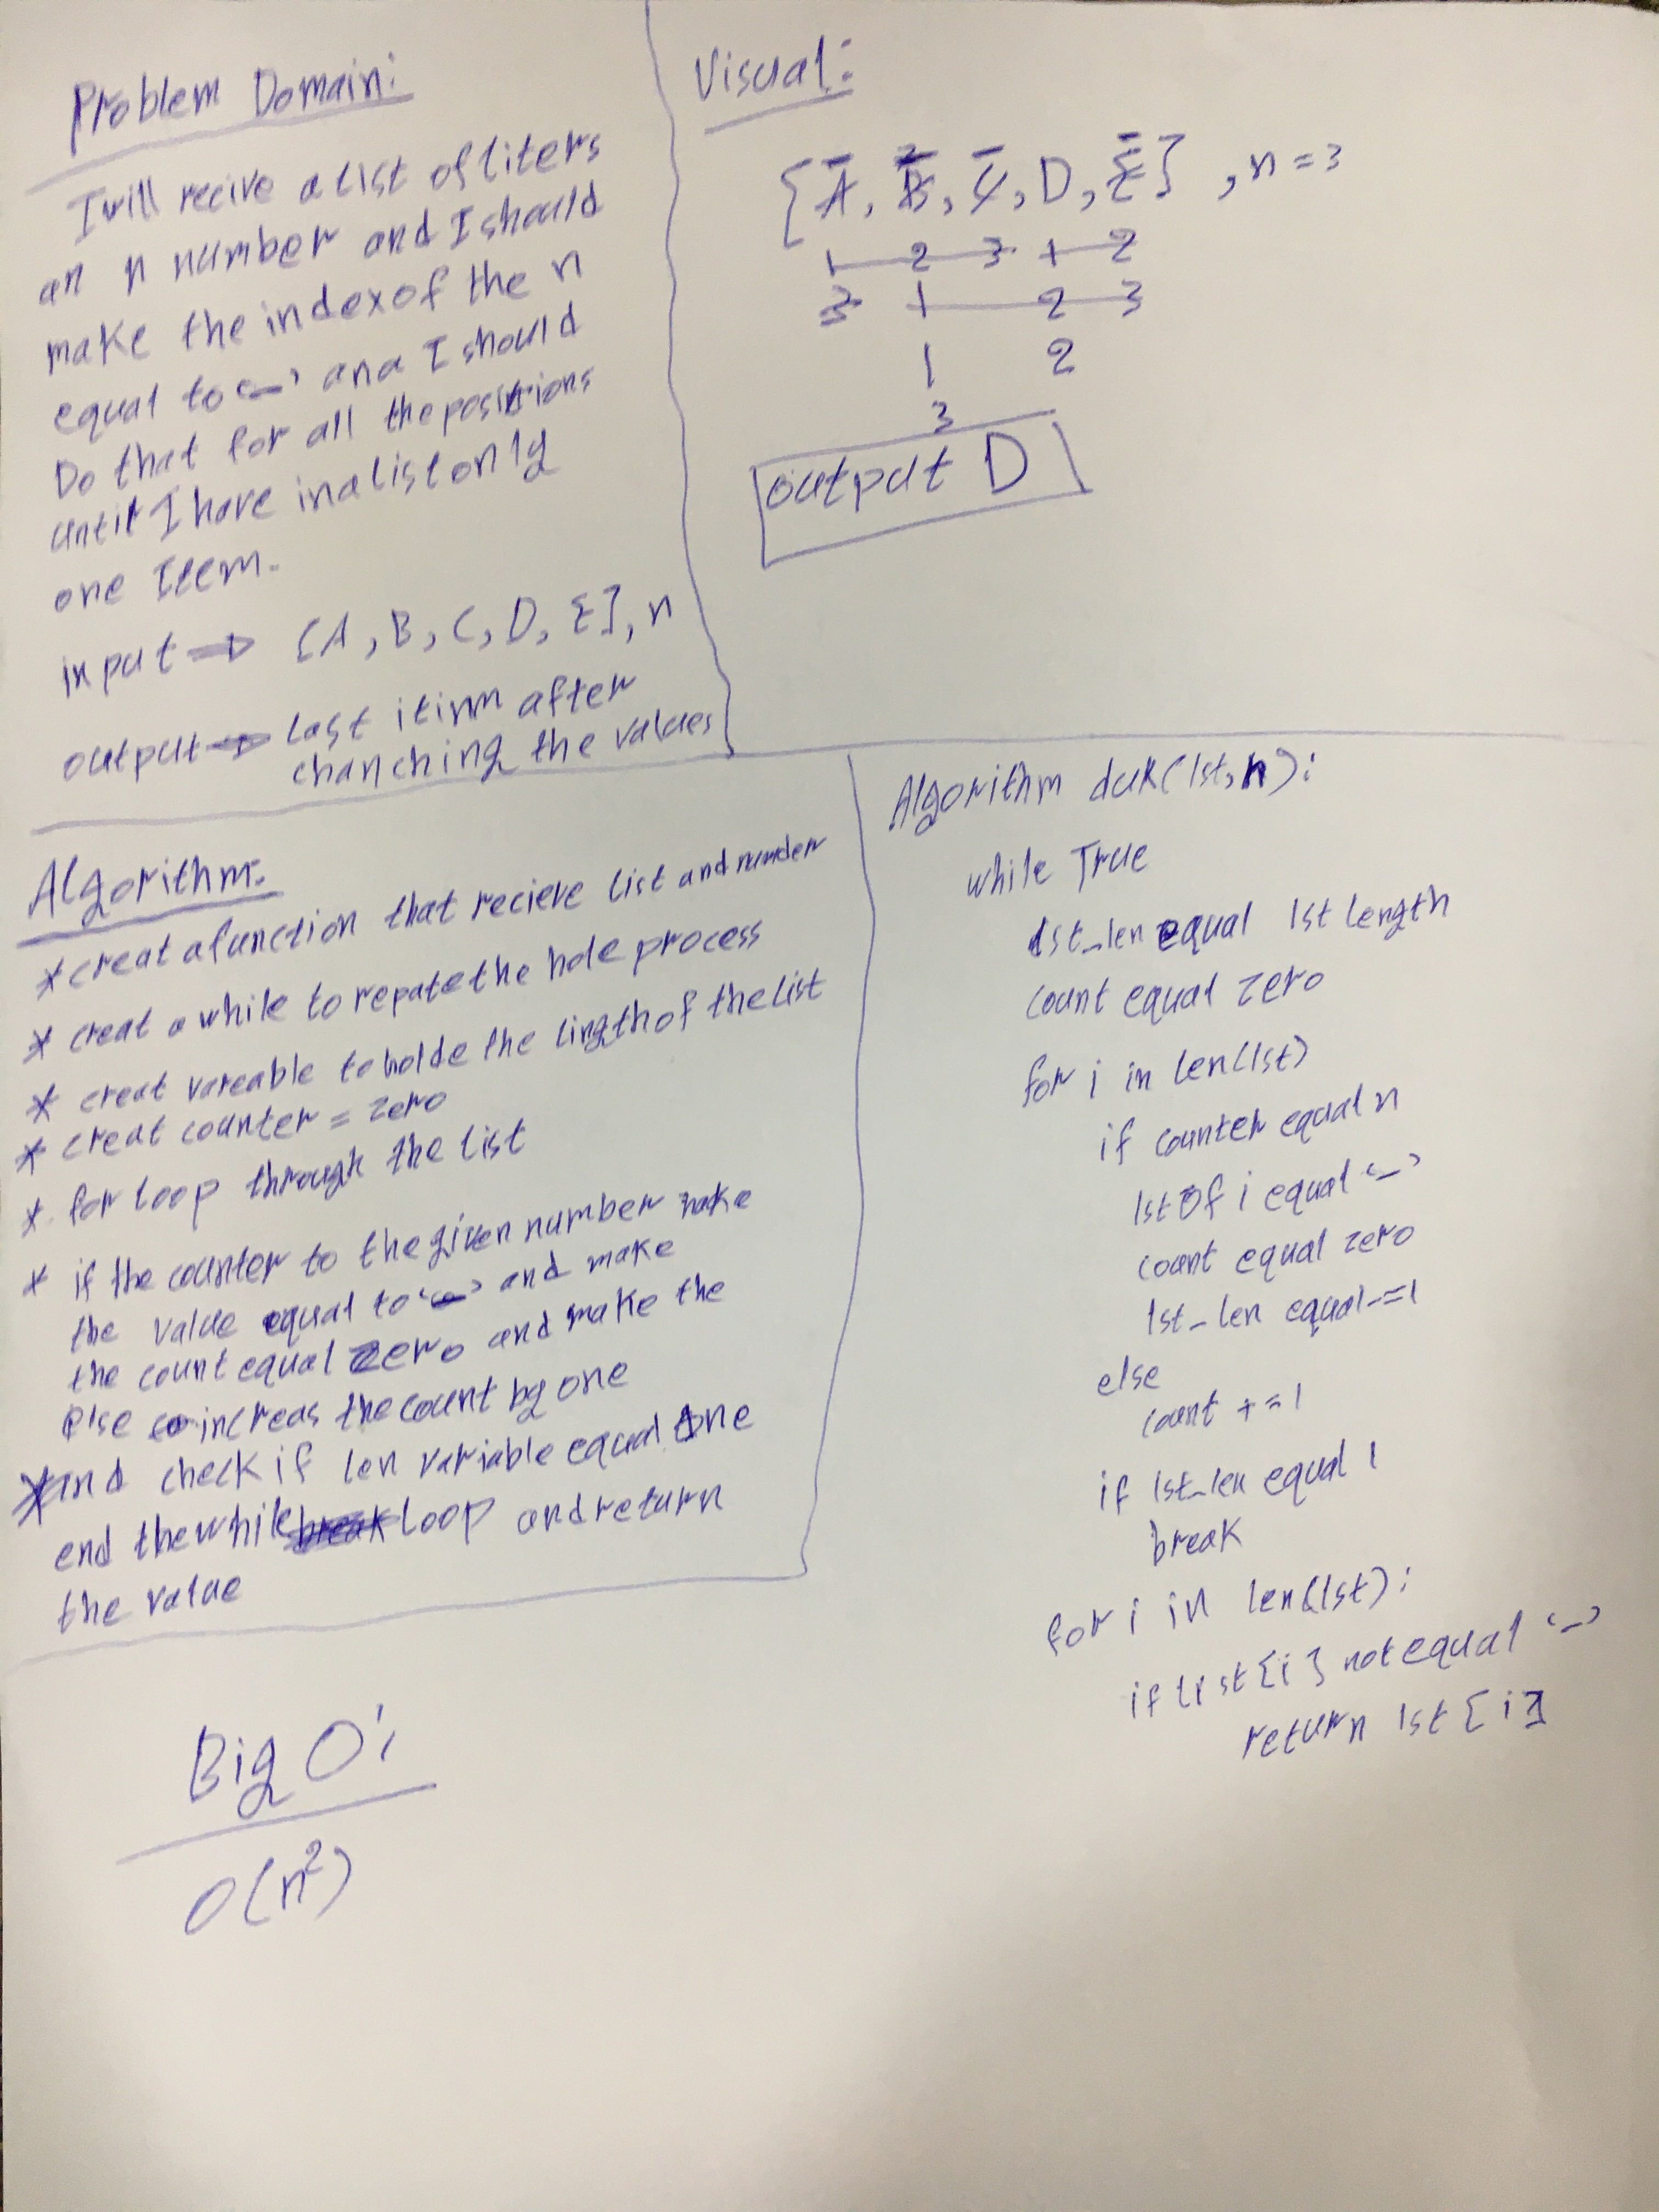 Problem Domain:
I will recive a list of liters
an n number and I should
make the index of the n
equal to '_' and I should
Do that for all the positions
until I have in a list only
one Item.
input → [A, B, C, D, E], n
output → last itim after
chanching the values
Visual:
[A, B, C, D, E] , n = 3
1 2 3 1 2
3 1 2 3
1 2
3
output D
Algorithm:
* creat a function that recieve list and number
* creat a while to repate the hole process
* creat vareable to holde the lingth of the list
* creat counter = zero
* for loop through the list
* if the counter to the given number make
the value equal to '_' and make
the count equal zero and make the
else increas the count by one
* and check if len variable equal one
end the while loop and return
the value
Algorithm duk(lst, n):
while True
lst_len equal lst length
count equal zero
for i in len(lst)
if counter equal n
lst of i equal '_'
count equal zero
lst_len equal -=1
else
count +=1
if lst_len equal 1
break
for i in len(lst):
if list [i] not equal '_'
return lst [i]
Big O:
O(n²)